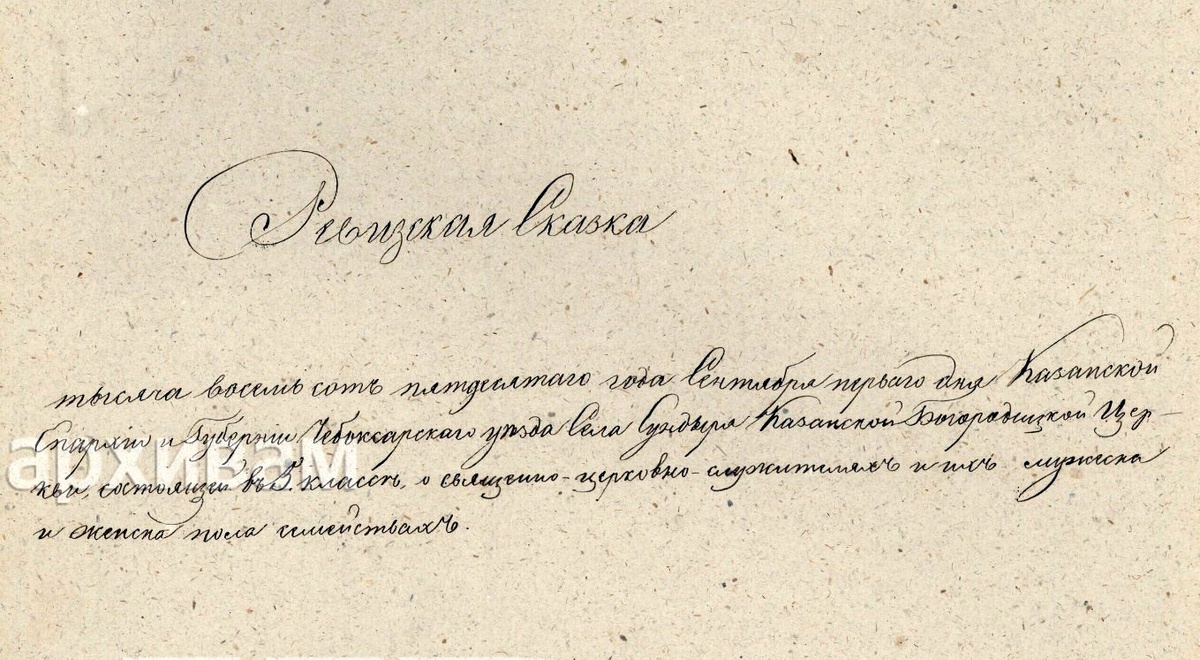 Ревизская Сказка
тысяча восемь сотъ пятдесятаго года Сентября перваго дня Казанской
Епархіи и Губерніи Чебоксарскаго уѣзда Села Сундыря Казанской Богородицкой Цер-
кви, состоящей въ 5. классѣ, о священно-церковно-служителяхъ и ихъ мужеска
и женска пола семействахъ.
архивам